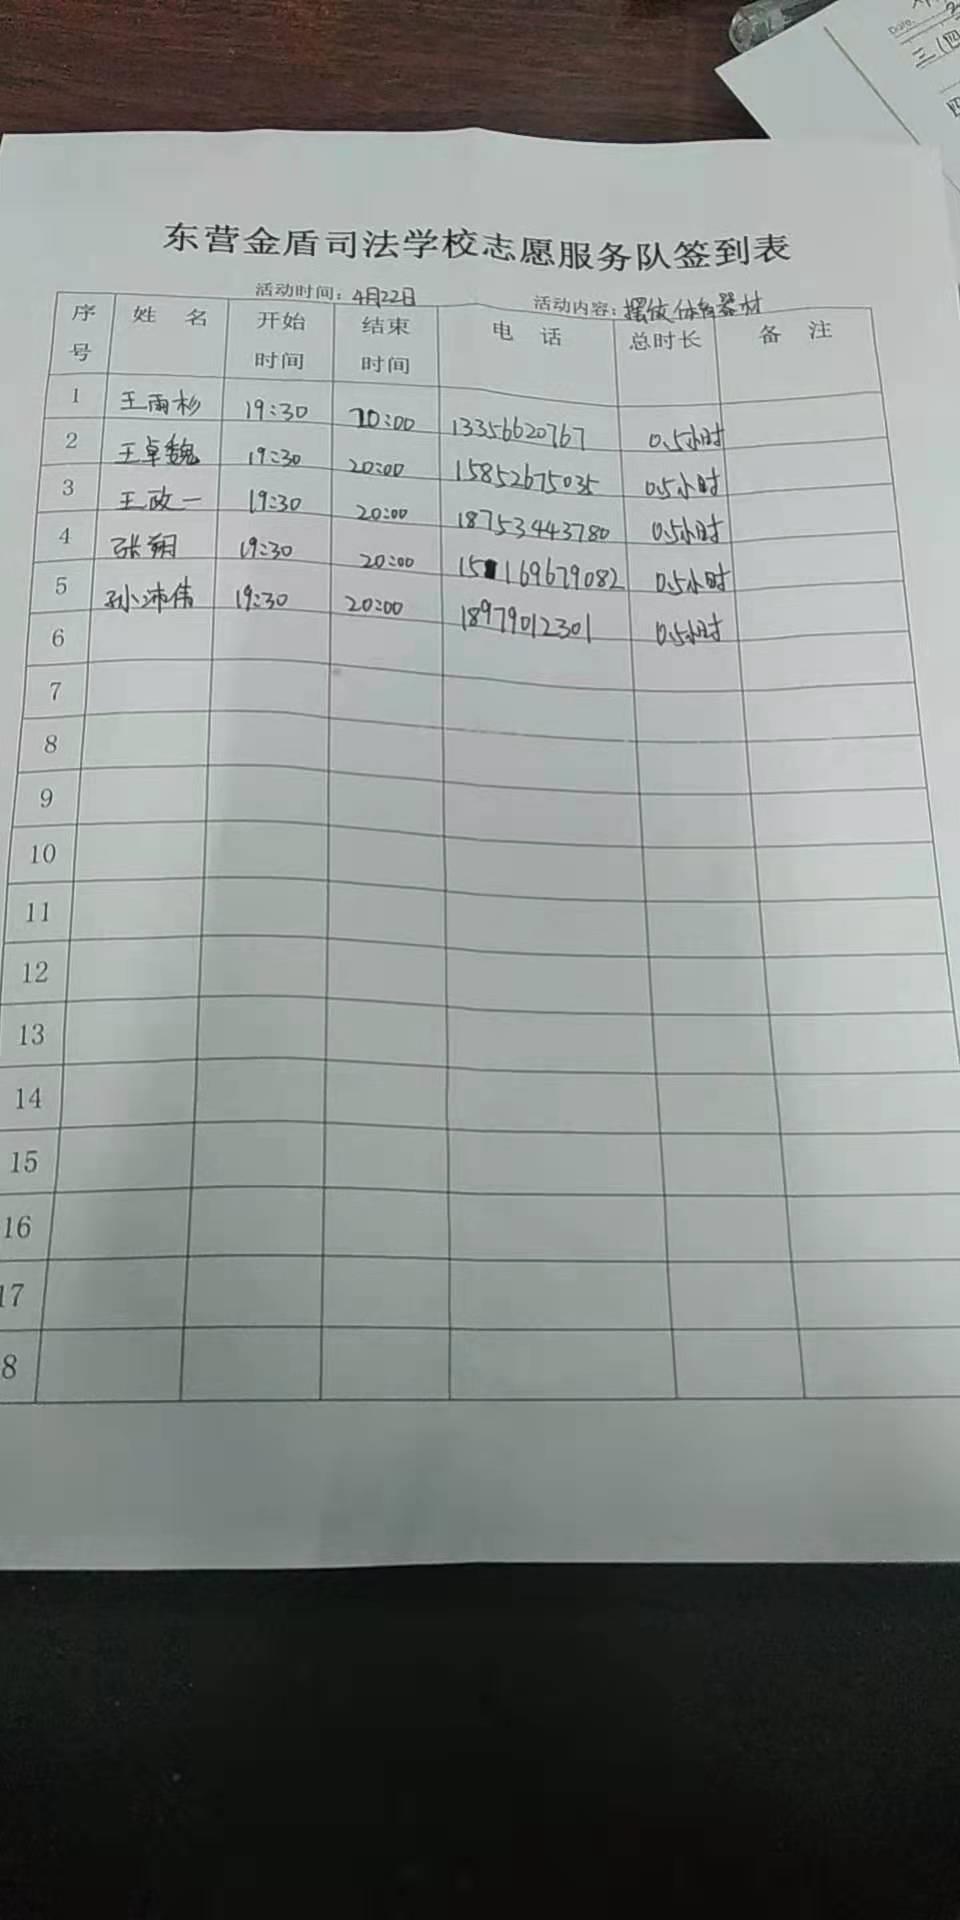 东营金盾司法学校志愿服务队签到表
活动时间：4月22日 活动内容：摆放体育器材
序号 姓名 开始时间 结束时间 电话 总时长 备注
1 王雨杉 19:30 20:00 13356620767 0.5小时
2 王卓魏 19:30 20:00 15852675035 0.5小时
3 王政一 19:30 20:00 18753443780 0.5小时
4 张翔 19:30 20:00 15169679082 0.5小时
5 孙沛倩 19:30 20:00 18979012301 0.5小时
6
7
8
9
10
11
12
13
14
15
16
17
8